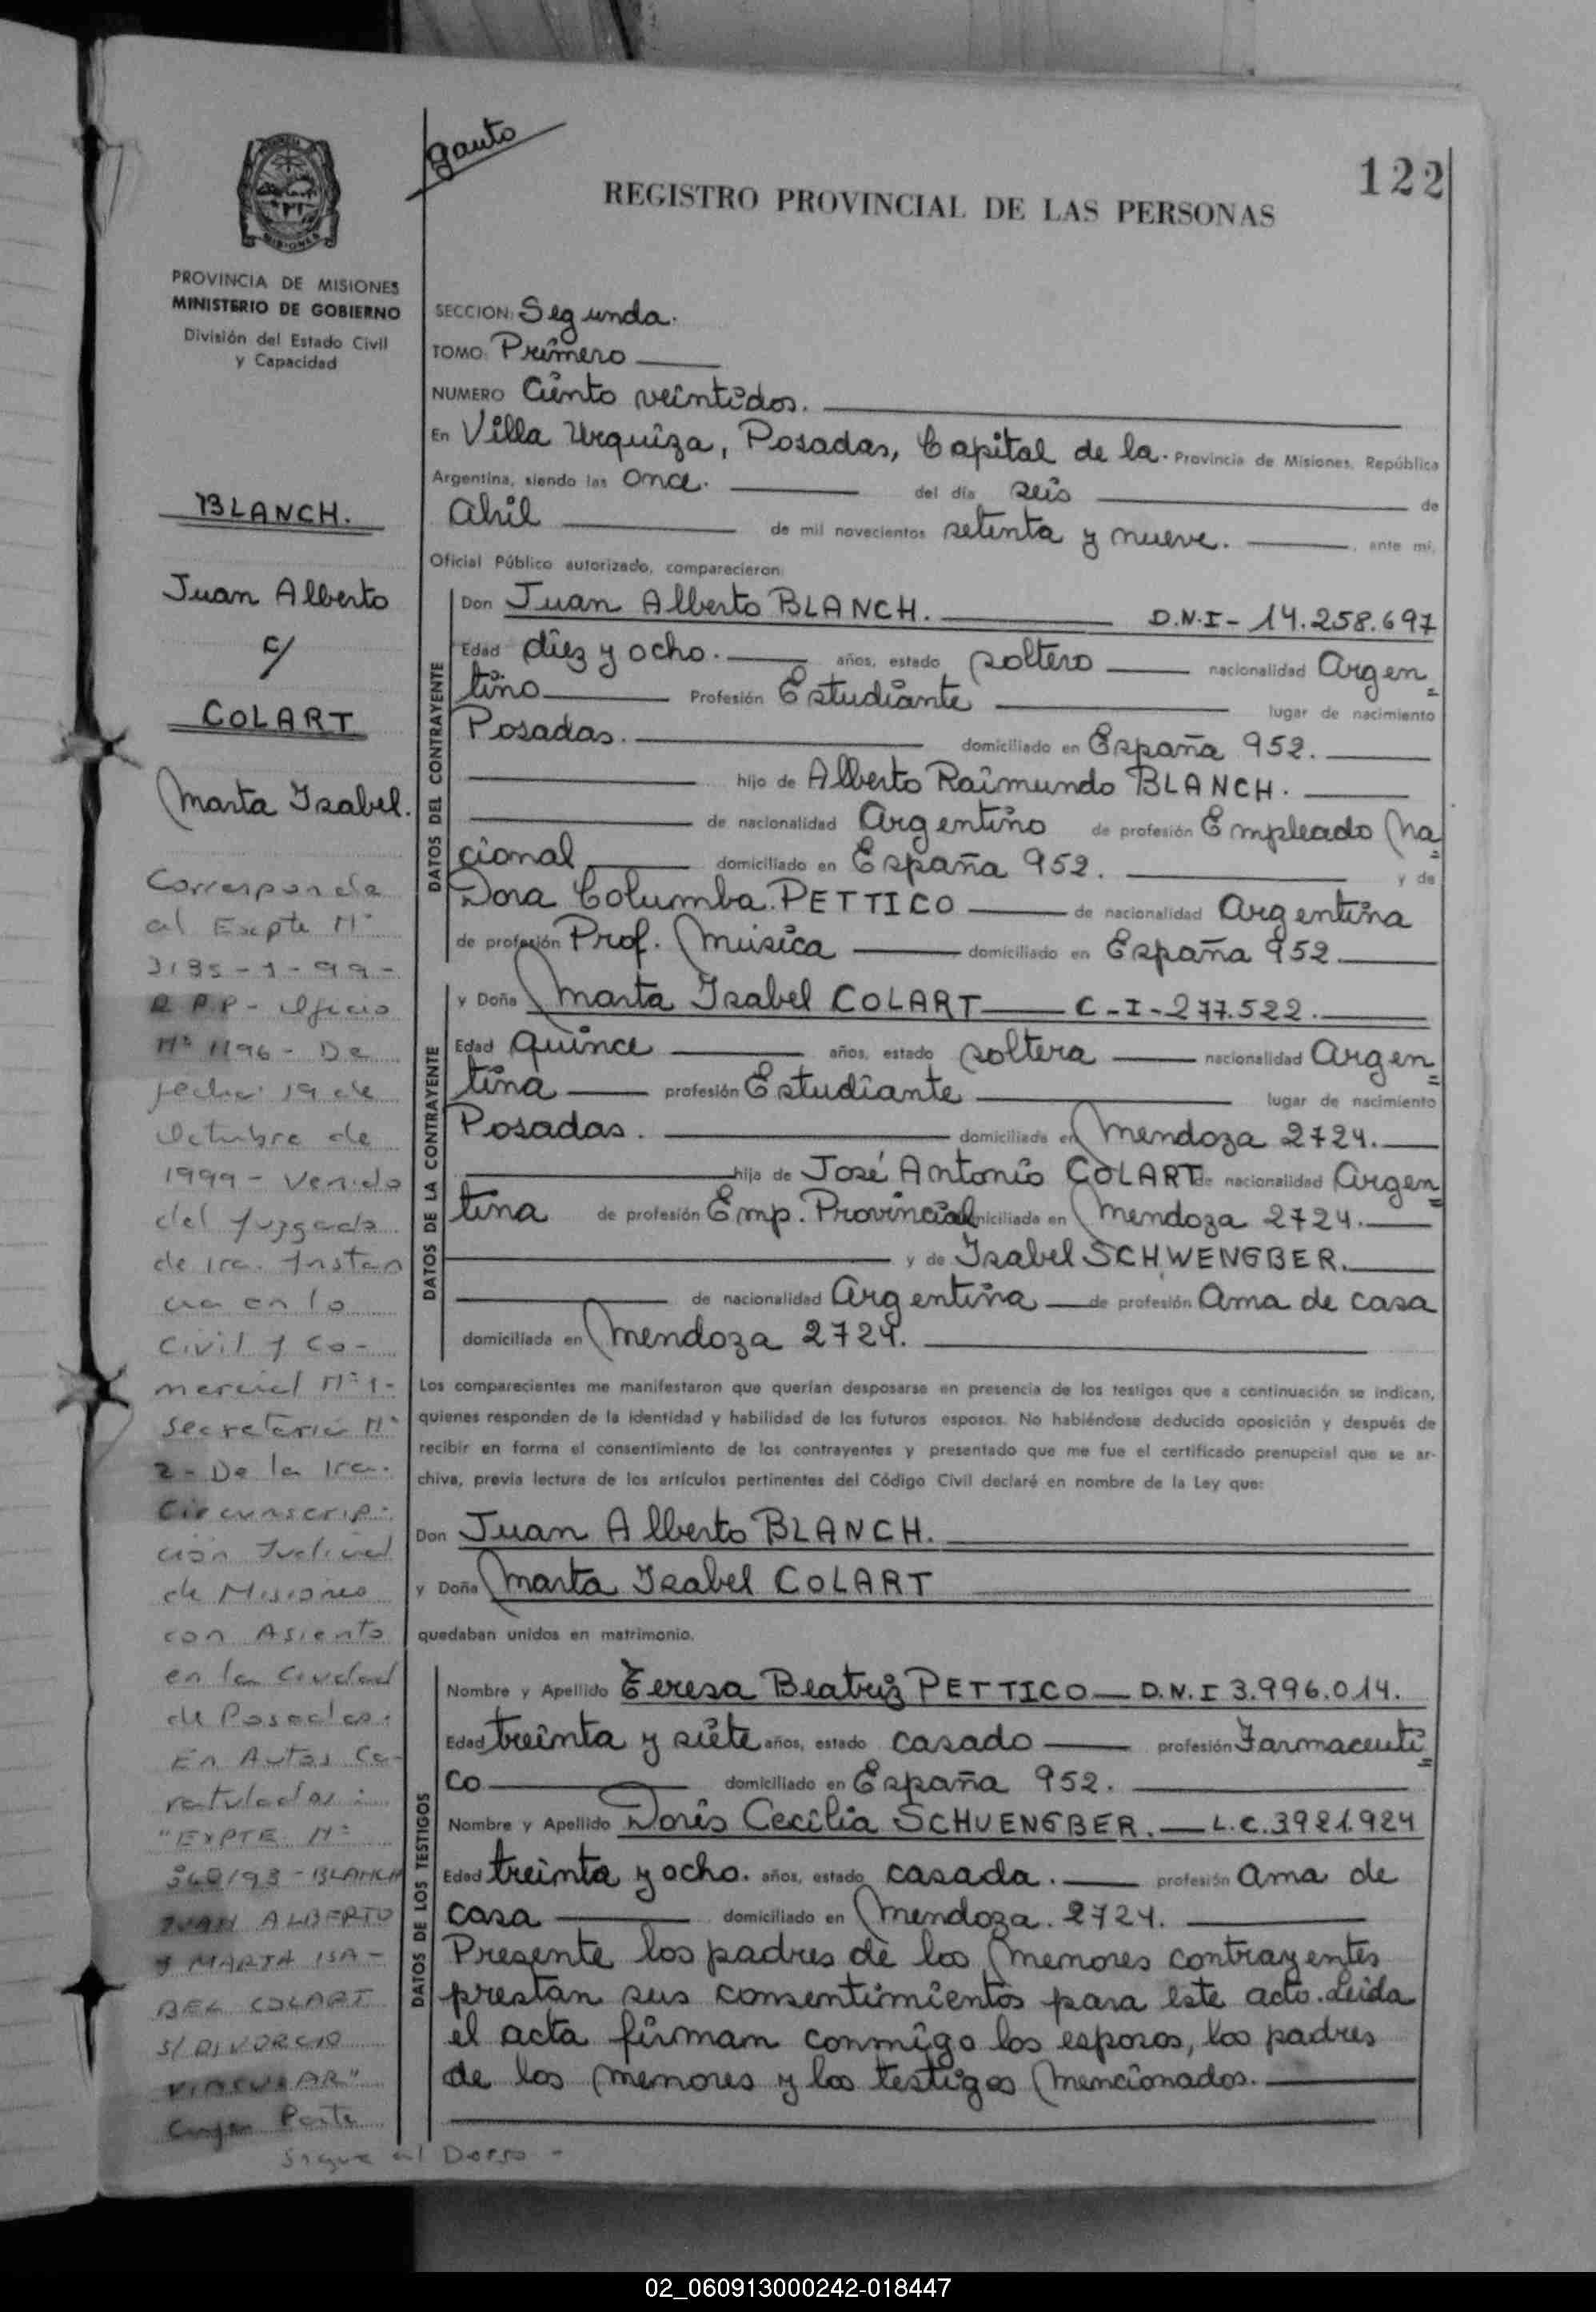 gauto
122
REGISTRO PROVINCIAL DE LAS PERSONAS
MISIONES
PROVINCIA DE MISIONES
MINISTERIO DE GOBIERNO
División del Estado Civil
y Capacidad
BLANCH.
Juan Alberto
c/
COLART
Marta Isabel.
Corresponde
al Expte Nº
3135-1-99-
R.P.P- Oficio
Nº 1196- De
fecha: 19 de
Octubre de
1999- Venido
del Juzgado
de 1ra. Instan
cia en lo
Civil y Co-
mercial Nº 1-
Secretaria Nº
2- De la 1ra.
Circunscrip-
ción Judicial
de Misiones
con Asiento
en la Ciudad
de Posadas.
En Autos Ca-
ratulados:
"EXPTE Nº
340/93-BLANCH
JUAN ALBERTO
y MARTA ISA-
BEL COLART
S/ DIVORCIO
VINCULAR"
Parte
Sigue al Dorso-
SECCION: Segunda.
TOMO: Primero
NUMERO Ciento veintidos.
En Villa Urquiza, Posadas, Capital de la. Provincia de Misiones, República
Argentina, siendo las once. del día seis de
abril de mil novecientos setenta y nueve. , ante mí,
Oficial Público autorizado, comparecieron:
DATOS DEL CONTRAYENTE
Don Juan Alberto BLANCH. D.N.I- 14.258.697
Edad diez y ocho. años, estado soltero nacionalidad Argen=
tino Profesión Estudiante lugar de nacimiento
Posadas. domiciliado en España 952.
hijo de Alberto Raimundo BLANCH.
de nacionalidad Argentino de profesión Empleado Na=
cional domiciliado en España 952. y de
Dora Columba PETTICO de nacionalidad Argentina
de profesión Prof. Música domiciliado en España 952.
DATOS DE LA CONTRAYENTE
y Doña Marta Isabel COLART C-I-277.522.
Edad quince años, estado soltera nacionalidad Argen=
tina profesión Estudiante lugar de nacimiento
Posadas. domiciliada en Mendoza 2724.
hija de José Antonio COLART de nacionalidad Argen=
tina de profesión Emp. Provincial domiciliada en Mendoza 2724.
y de Isabel SCHWENGBER.
de nacionalidad Argentina de profesión Ama de casa
domiciliada en Mendoza 2724.
Los comparecientes me manifestaron que querían desposarse en presencia de los testigos que a continuación se indican,
quienes responden de la identidad y habilidad de los futuros esposos. No habiéndose deducido oposición y después de
recibir en forma el consentimiento de los contrayentes y presentado que me fue el certificado prenupcial que se ar-
chiva, previa lectura de los artículos pertinentes del Código Civil declaré en nombre de la Ley que:
Don Juan Alberto BLANCH.
y Doña Marta Isabel COLART
quedaban unidos en matrimonio.
DATOS DE LOS TESTIGOS
Nombre y Apellido Teresa Beatriz PETTICO D.N.I 3.996.014.
Edad treinta y siete años, estado casado profesión Farmaceuti=
co domiciliado en España 952.
Nombre y Apellido Doris Cecilia SCHUENGBER. L.C. 3921.924
Edad treinta y ocho. años, estado casada. profesión Ama de
casa domiciliado en Mendoza. 2724.
Presente los padres de los menores contrayentes
prestan sus consentimientos para este acto. Leida
el acta firman conmigo los esposos, los padres
de los menores y los testigos mencionados.
02_060913000242-018447